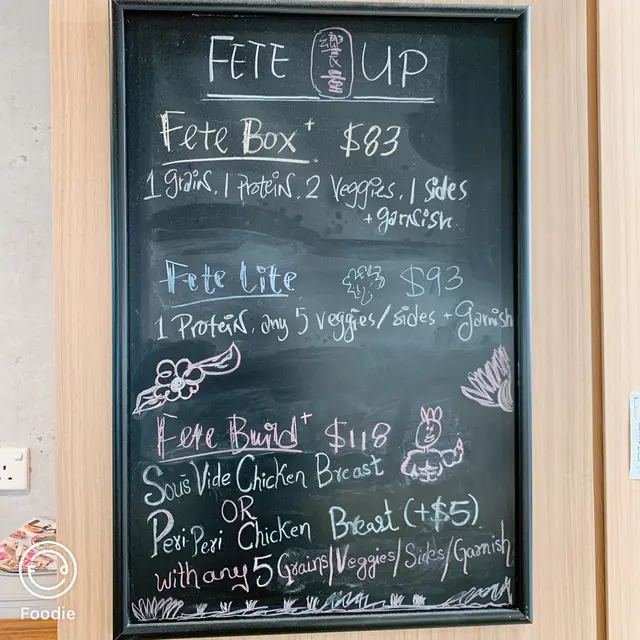 FETE 饗盒 UP
Fete Box+ $83
1 grain, 1 Protein, 2 Veggies, 1 Sides
+ garnish
Fete Lite $93
1 Protein, any 5 veggies/sides + Garnish
Fete Build+ $118
Sous Vide Chicken Breast
OR
Peri-Peri Chicken Breast (+$5)
with any 5 Grains/Veggies/Sides/Garnish
Foodie